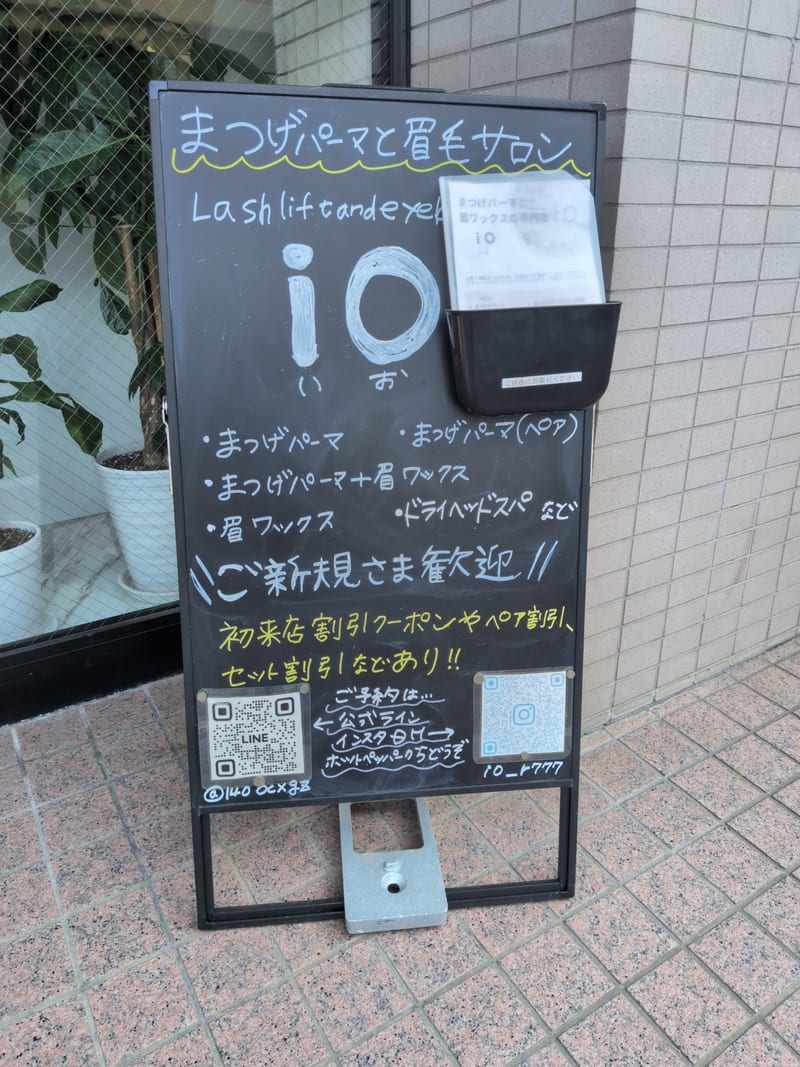 まつげパーマと眉毛サロン
Lash lift and eyeb
まつげパーマと
眉ワックスの専門店
io
io
いお
ご自由にお取りください
・まつげパーマ ・まつげパーマ(ペア)
・まつげパーマ+眉ワックス
・眉ワックス ・ドライヘッドスパ など
\\ご新規さま歓迎//
初来店割引クーポンやペア割引、
セット割引などあり!!
ご予約は…
←公式ライン
インスタDM→
ホットペッパーからどうぞ
LINE
@140ocxgz
io_r777